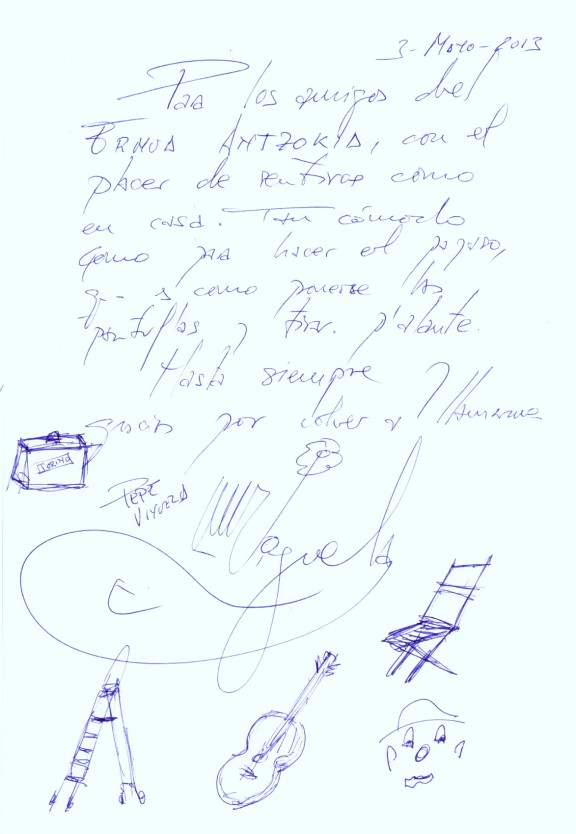 3-Mayo-2013
Para los amigos del
ERMUA ANTZOKIA, con el
placer de sentirse como
en casa. Tan cómodo
como para hacer el payaso,
que es como ponerse las
pantuflas y tirar p'alante.
Hasta siempre y
gracias por volver a llamarme
PEPE
VIYUELA
Viyuela